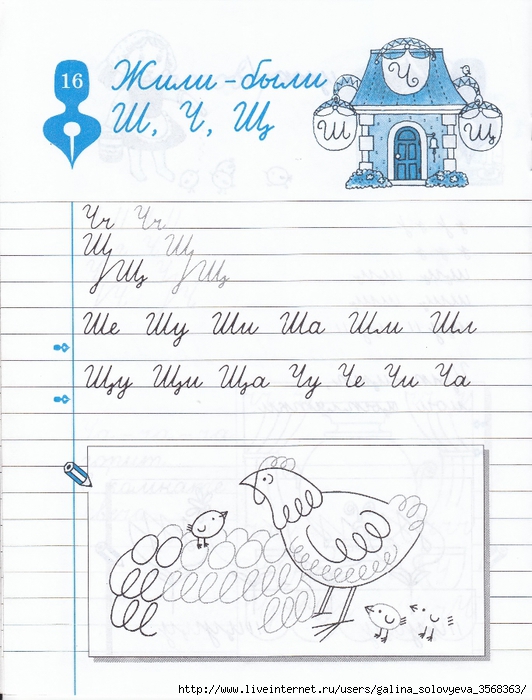 16
Жили-были
Ш, Ч, Щ
Ч
Ш Щ
Чч Чч
Щ Щ
Щ Щ
Ше Шу Ши Ша Шм Шл
Щу Щи Ща Чу Че Чи Ча
http://www.liveinternet.ru/users/galina_solovyeva_3568363/